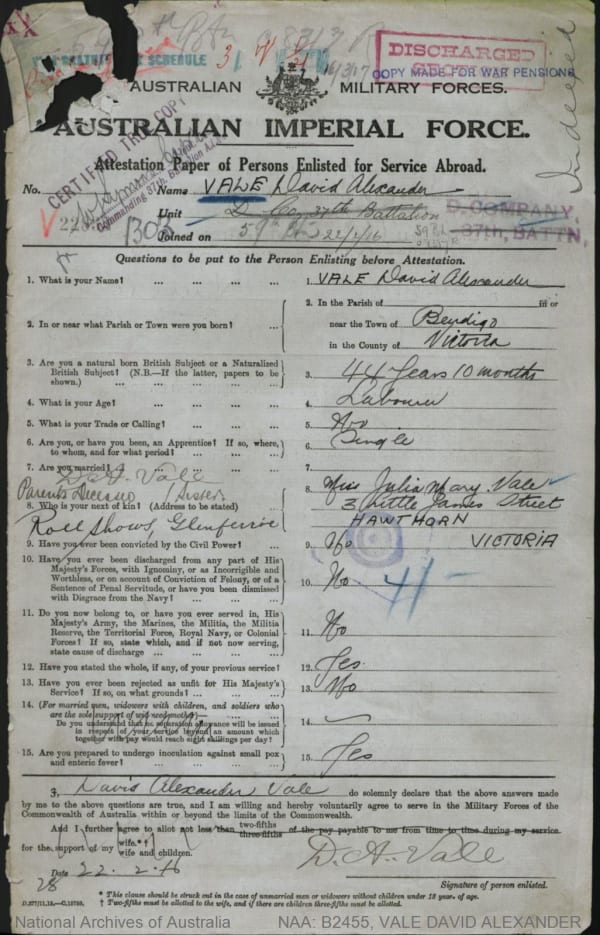 SCHEDULE
DISCHARGED
COPY MADE FOR WAR PENSIONS
Indexed
AUSTRALIAN MILITARY FORCES.
AUSTRALIAN IMPERIAL FORCE.
Attestation Paper of Persons Enlisted for Service Abroad.
CERTIFIED TRUE COPY
Commanding 37th Battalion A.I.F.
No. Name VALE David Alexander
Unit D Coy 37th Battalion
D. COMPANY,
37th, BATTN.
1303
Joined on 22/2/16
59th Bn
Questions to be put to the Person Enlisting before Attestation.
1. What is your Name? ... ... ... 1. VALE David Alexander
2. In or near what Parish or Town were you born? ... 2. In the Parish of in or
near the Town of Bendigo
in the County of Victoria
3. Are you a natural born British Subject or a Naturalized
British Subject? (N.B.—If the latter, papers to be
shown.) ... ... ... 3. 44 Years 10 months
4. What is your Age? ... ... ... 4. Labourer
5. What is your Trade or Calling? ... ... 5. No
6. Are you, or have you been, an Apprentice? If so, where,
to whom, and for what period? ... ... 6. Single
7. Are you married? ... 7.
D. A. Vale
Parents Deceased (Sister)
8. Who is your next of kin? (Address to be stated) 8. Miss Julia Mary Vale
3 Little James Street
HAWTHORN
VICTORIA
Glenferrie
9. Have you ever been convicted by the Civil Power? ... 9. No
10. Have you ever been discharged from any part of His
Majesty's Forces, with Ignominy, or as Incorrigible and
Worthless, or on account of Conviction of Felony, or of a
Sentence of Penal Servitude, or have you been dismissed
with Disgrace from the Navy? ... ... 10. No
4/-
11. Do you now belong to, or have you ever served in, His
Majesty's Army, the Marines, the Militia, the Militia
Reserve, the Territorial Force, Royal Navy, or Colonial
Forces? If so, state which, and if not now serving,
state cause of discharge ... ... ... 11. No
12. Have you stated the whole, if any, of your previous service? 12. Yes.
13. Have you ever been rejected as unfit for His Majesty's
Service? If so, on what grounds? ... ... 13. No
14. (For married men, widowers with children, and soldiers who
are the sole support of widowed mother)—
Do you understand that no separation allowance will be issued
in respect of your service beyond an amount which
together with pay would reach eight shillings per day? 14.
15. Are you prepared to undergo inoculation against small pox
and enteric fever? ... ... ... 15. Yes
I, David Alexander Vale do solemnly declare that the above answers made
by me to the above questions are true, and I am willing and hereby voluntarily agree to serve in the Military Forces of the
Commonwealth of Australia within or beyond the limits of the Commonwealth.
And I further agree to allot not less than two-fifths three-fifths of the pay payable to me from time to time during my service
for the support of my wife.*†
wife and children.
D. A. Vale
Date 22. 2. 16
28
Signature of person enlisted.
* This clause should be struck out in the case of unmarried men or widowers without children under 18 year. of age.
† Two-fifths must be allotted to the wife, and if there are children three-fifths must be allotted.
National Archives of Australia NAA: B2455, VALE DAVID ALEXANDER